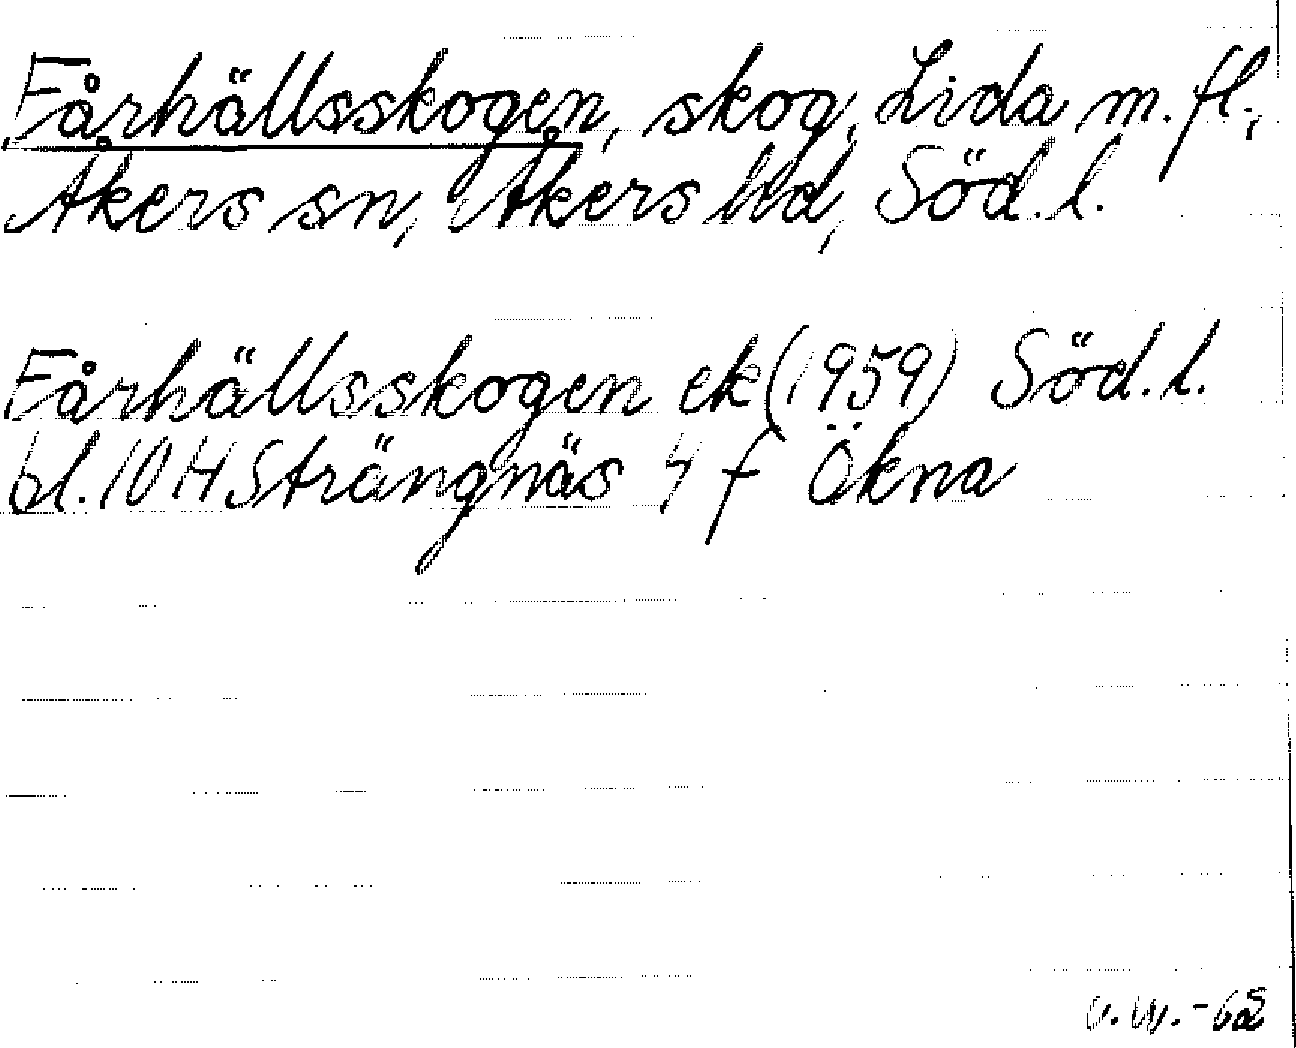 Fårhällsskogen, skog, Lida m.fl.,
Åkers sn, Åkers hd, Söd. l.
Fårhällsskogen ek (1959) Söd. l.
bl. 10 H Strängnäs 4 f Ökna